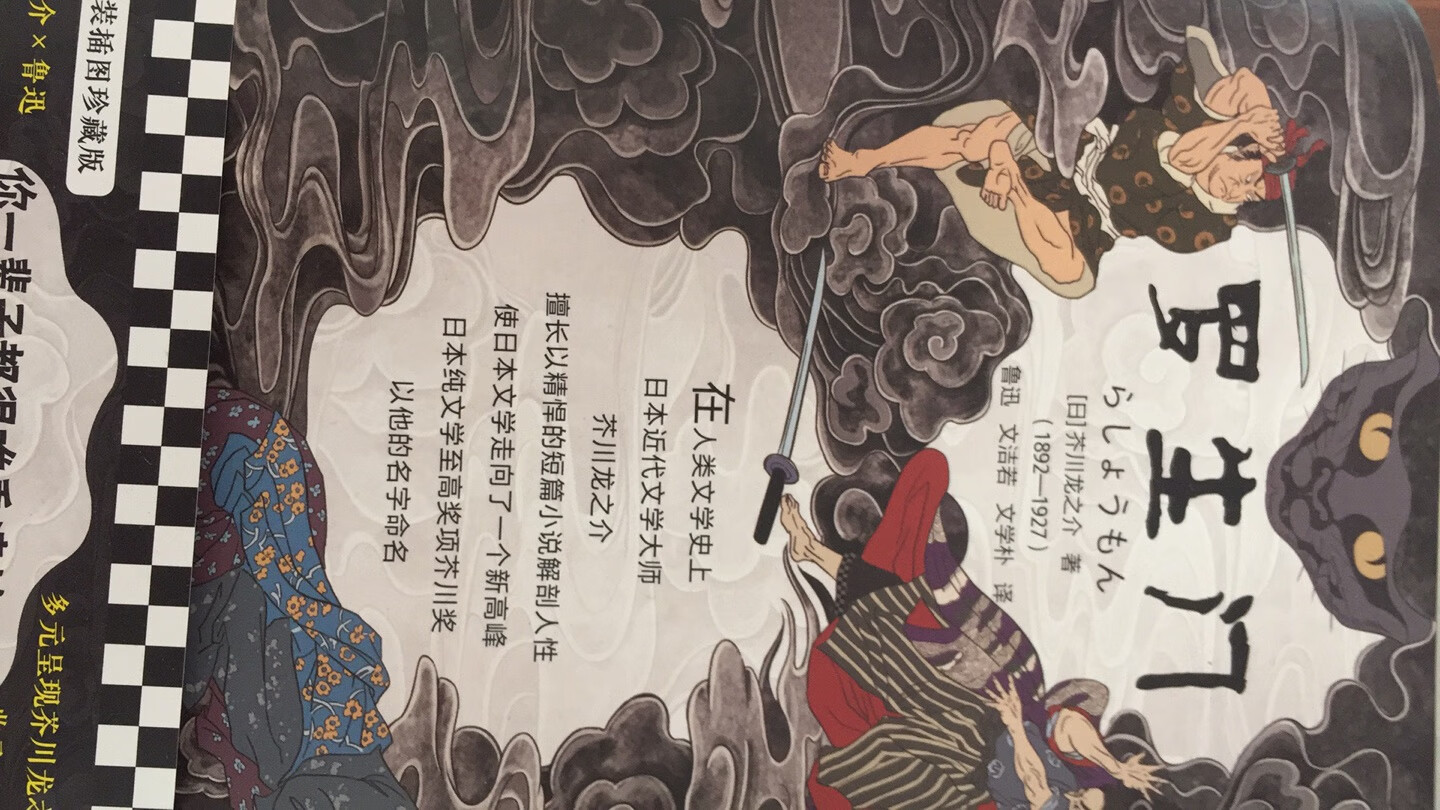 罗生门
らしょうもん
[日]芥川龙之介 著
(1892—1927)
鲁迅 文洁若 文学朴 译
在人类文学史上
日本近代文学大师
芥川龙之介
擅长以精悍的短篇小说解剖人性
使日本文学走向了一个新高峰
日本纯文学至高奖项芥川奖
以他的名字命名
装插图珍藏版
介×鲁迅
你一辈子都很
多元呈现芥川龙